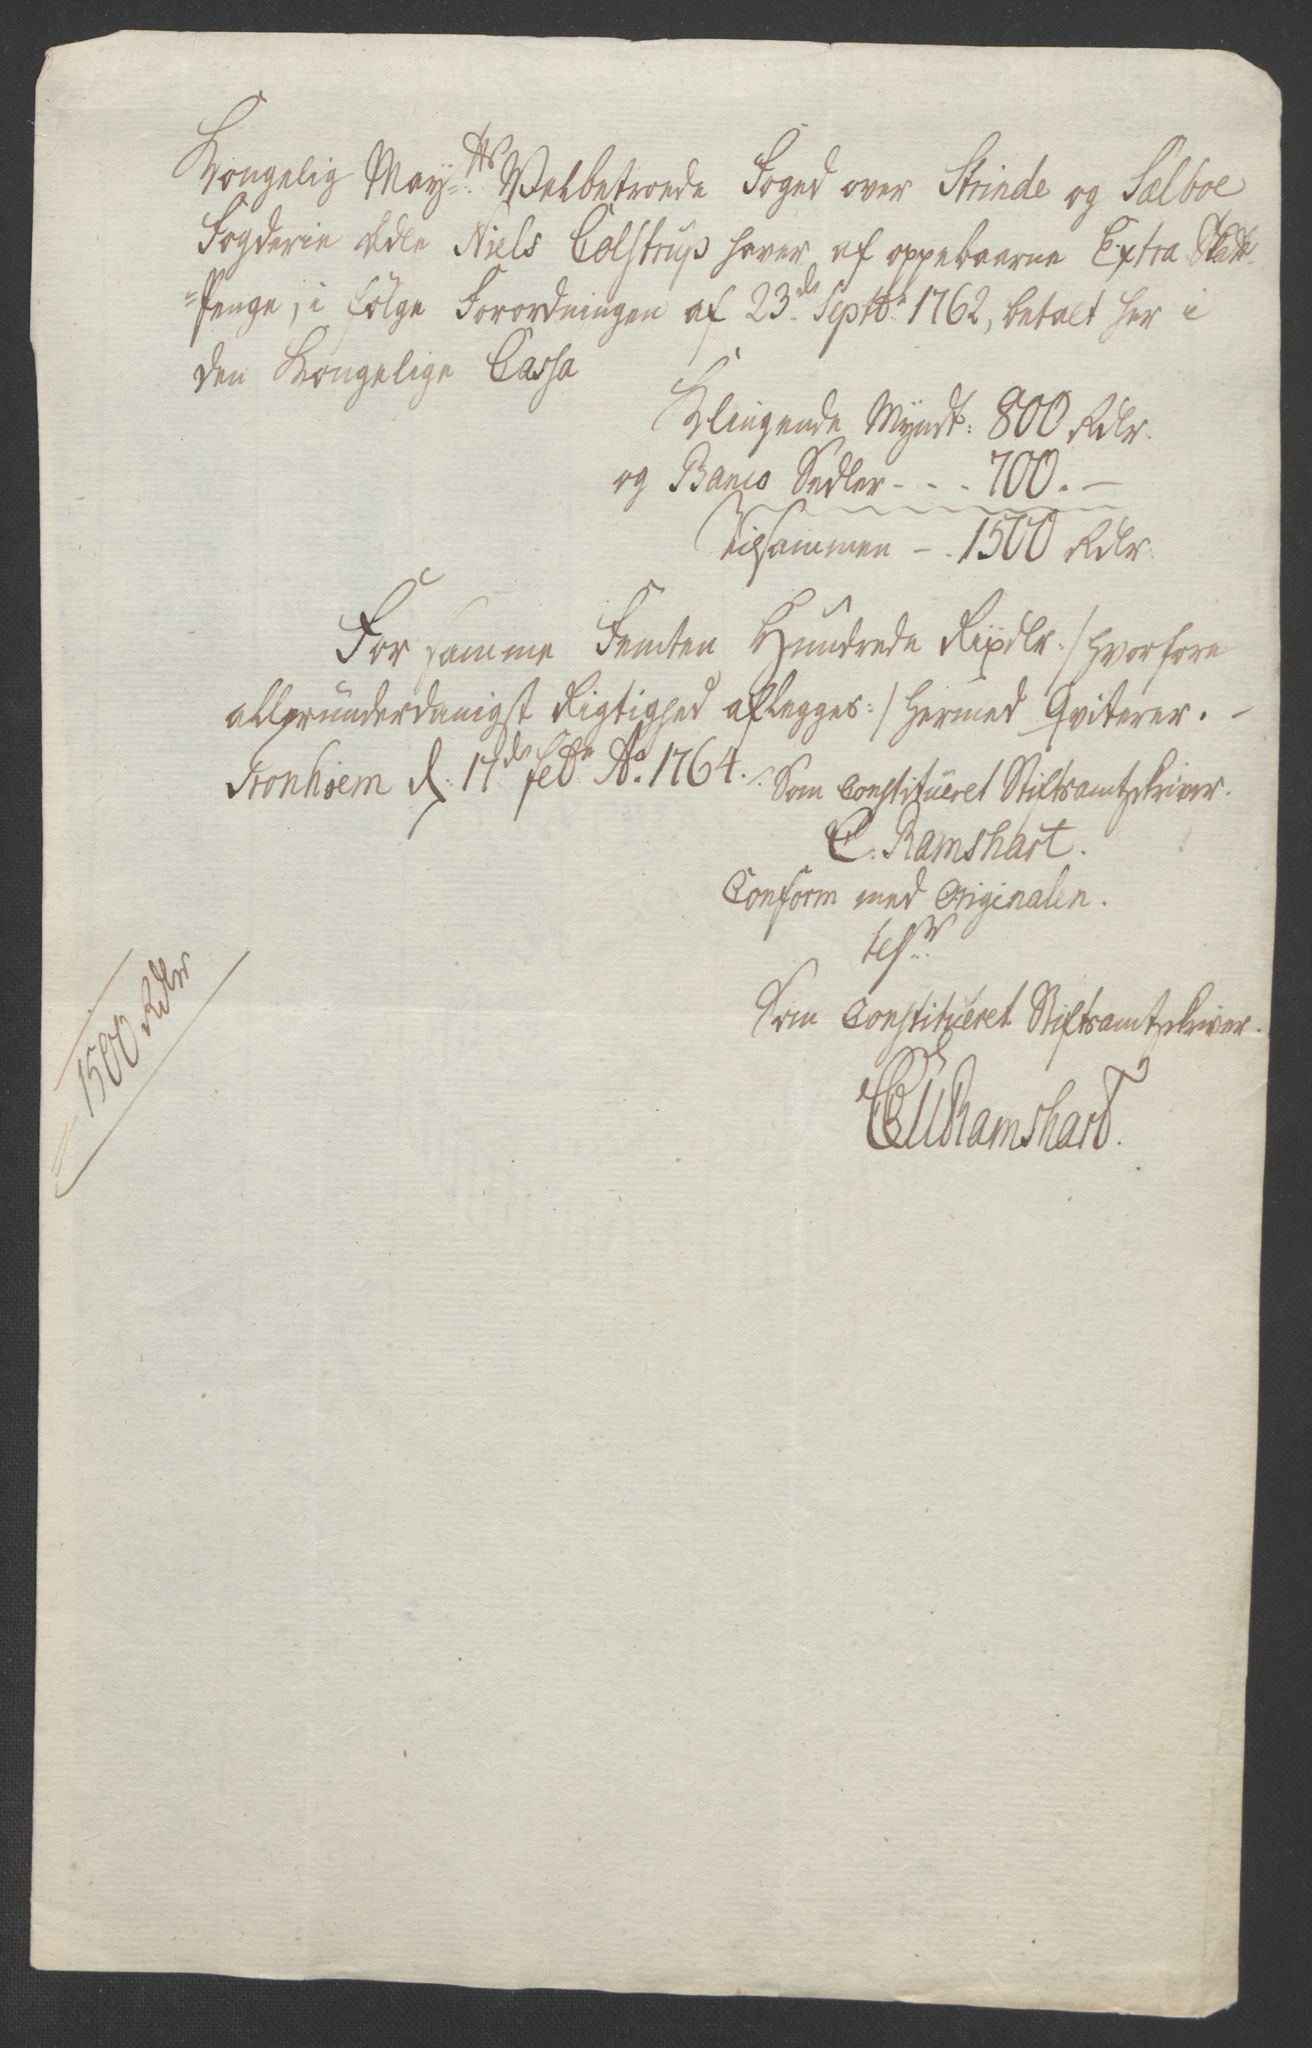 Kongelig May:ts Velbetroede Foged over Strinde og Sælboe
Fogderie Edle Niels Colstrup haver af oppebaarne Extra Skatte-
=Penge, i følge Forordningen af 23de Septbr 1762, betalt her i
den Kongelige Cassa
Klingende Myndt: 800 Rdlr.
og Banco Sedler - - - 700. -
Tilsammen - . 1500 Rdlr.
For samme Femten Hundrede Rixdlr: / hvorfore
allerunderdanigst Rigtighed aflegges: / hermed Qviterer. -
Tronhiem d. 17de febr Ao. 1764. Som Constitueret Stiftsamtskriver.
C. Ramshart.
Conform med Originalen.
test:
Som Constitueret Stiftsamtskriver.
CURamshart.
1500 Rdlr